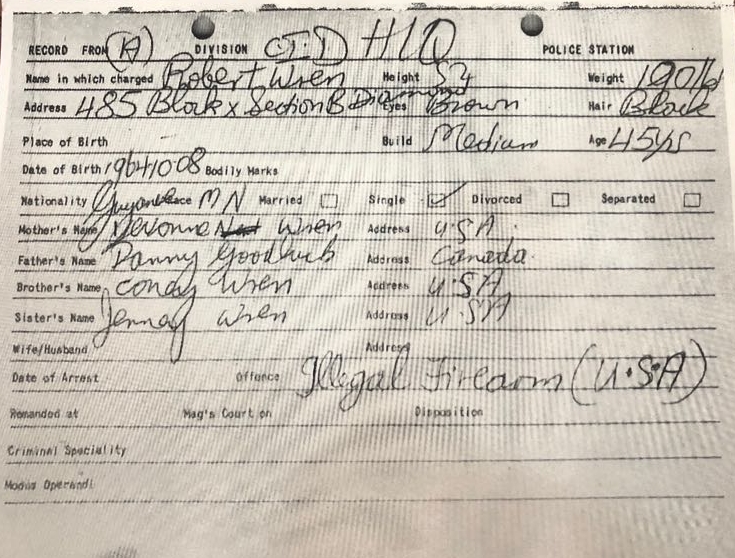 RECORD FROM (A) DIVISION C.I.D H/Q POLICE STATION
Name in which charged Robert Wren Height 5'4 Weight 190lbs
Address 485 Block x Section B Diamond Eyes Brown Hair Black
Place of Birth Build Medium Age 45yrs
Date of Birth 1964/10/08 Bodily Marks
Nationality Guyanese Race M N Married Single ✓ Divorced Separated
Mother's Name Wren Address U.S.A.
Father's Name Address Canada.
Brother's Name Wren Address U.S.A
Sister's Name Wren Address U.S.A
Wife/Husband Address
Date of Arrest Offence Illegal Firearm (U.S.A)
Remanded at Mag's Court on Disposition
Criminal Speciality
Modus Operandi